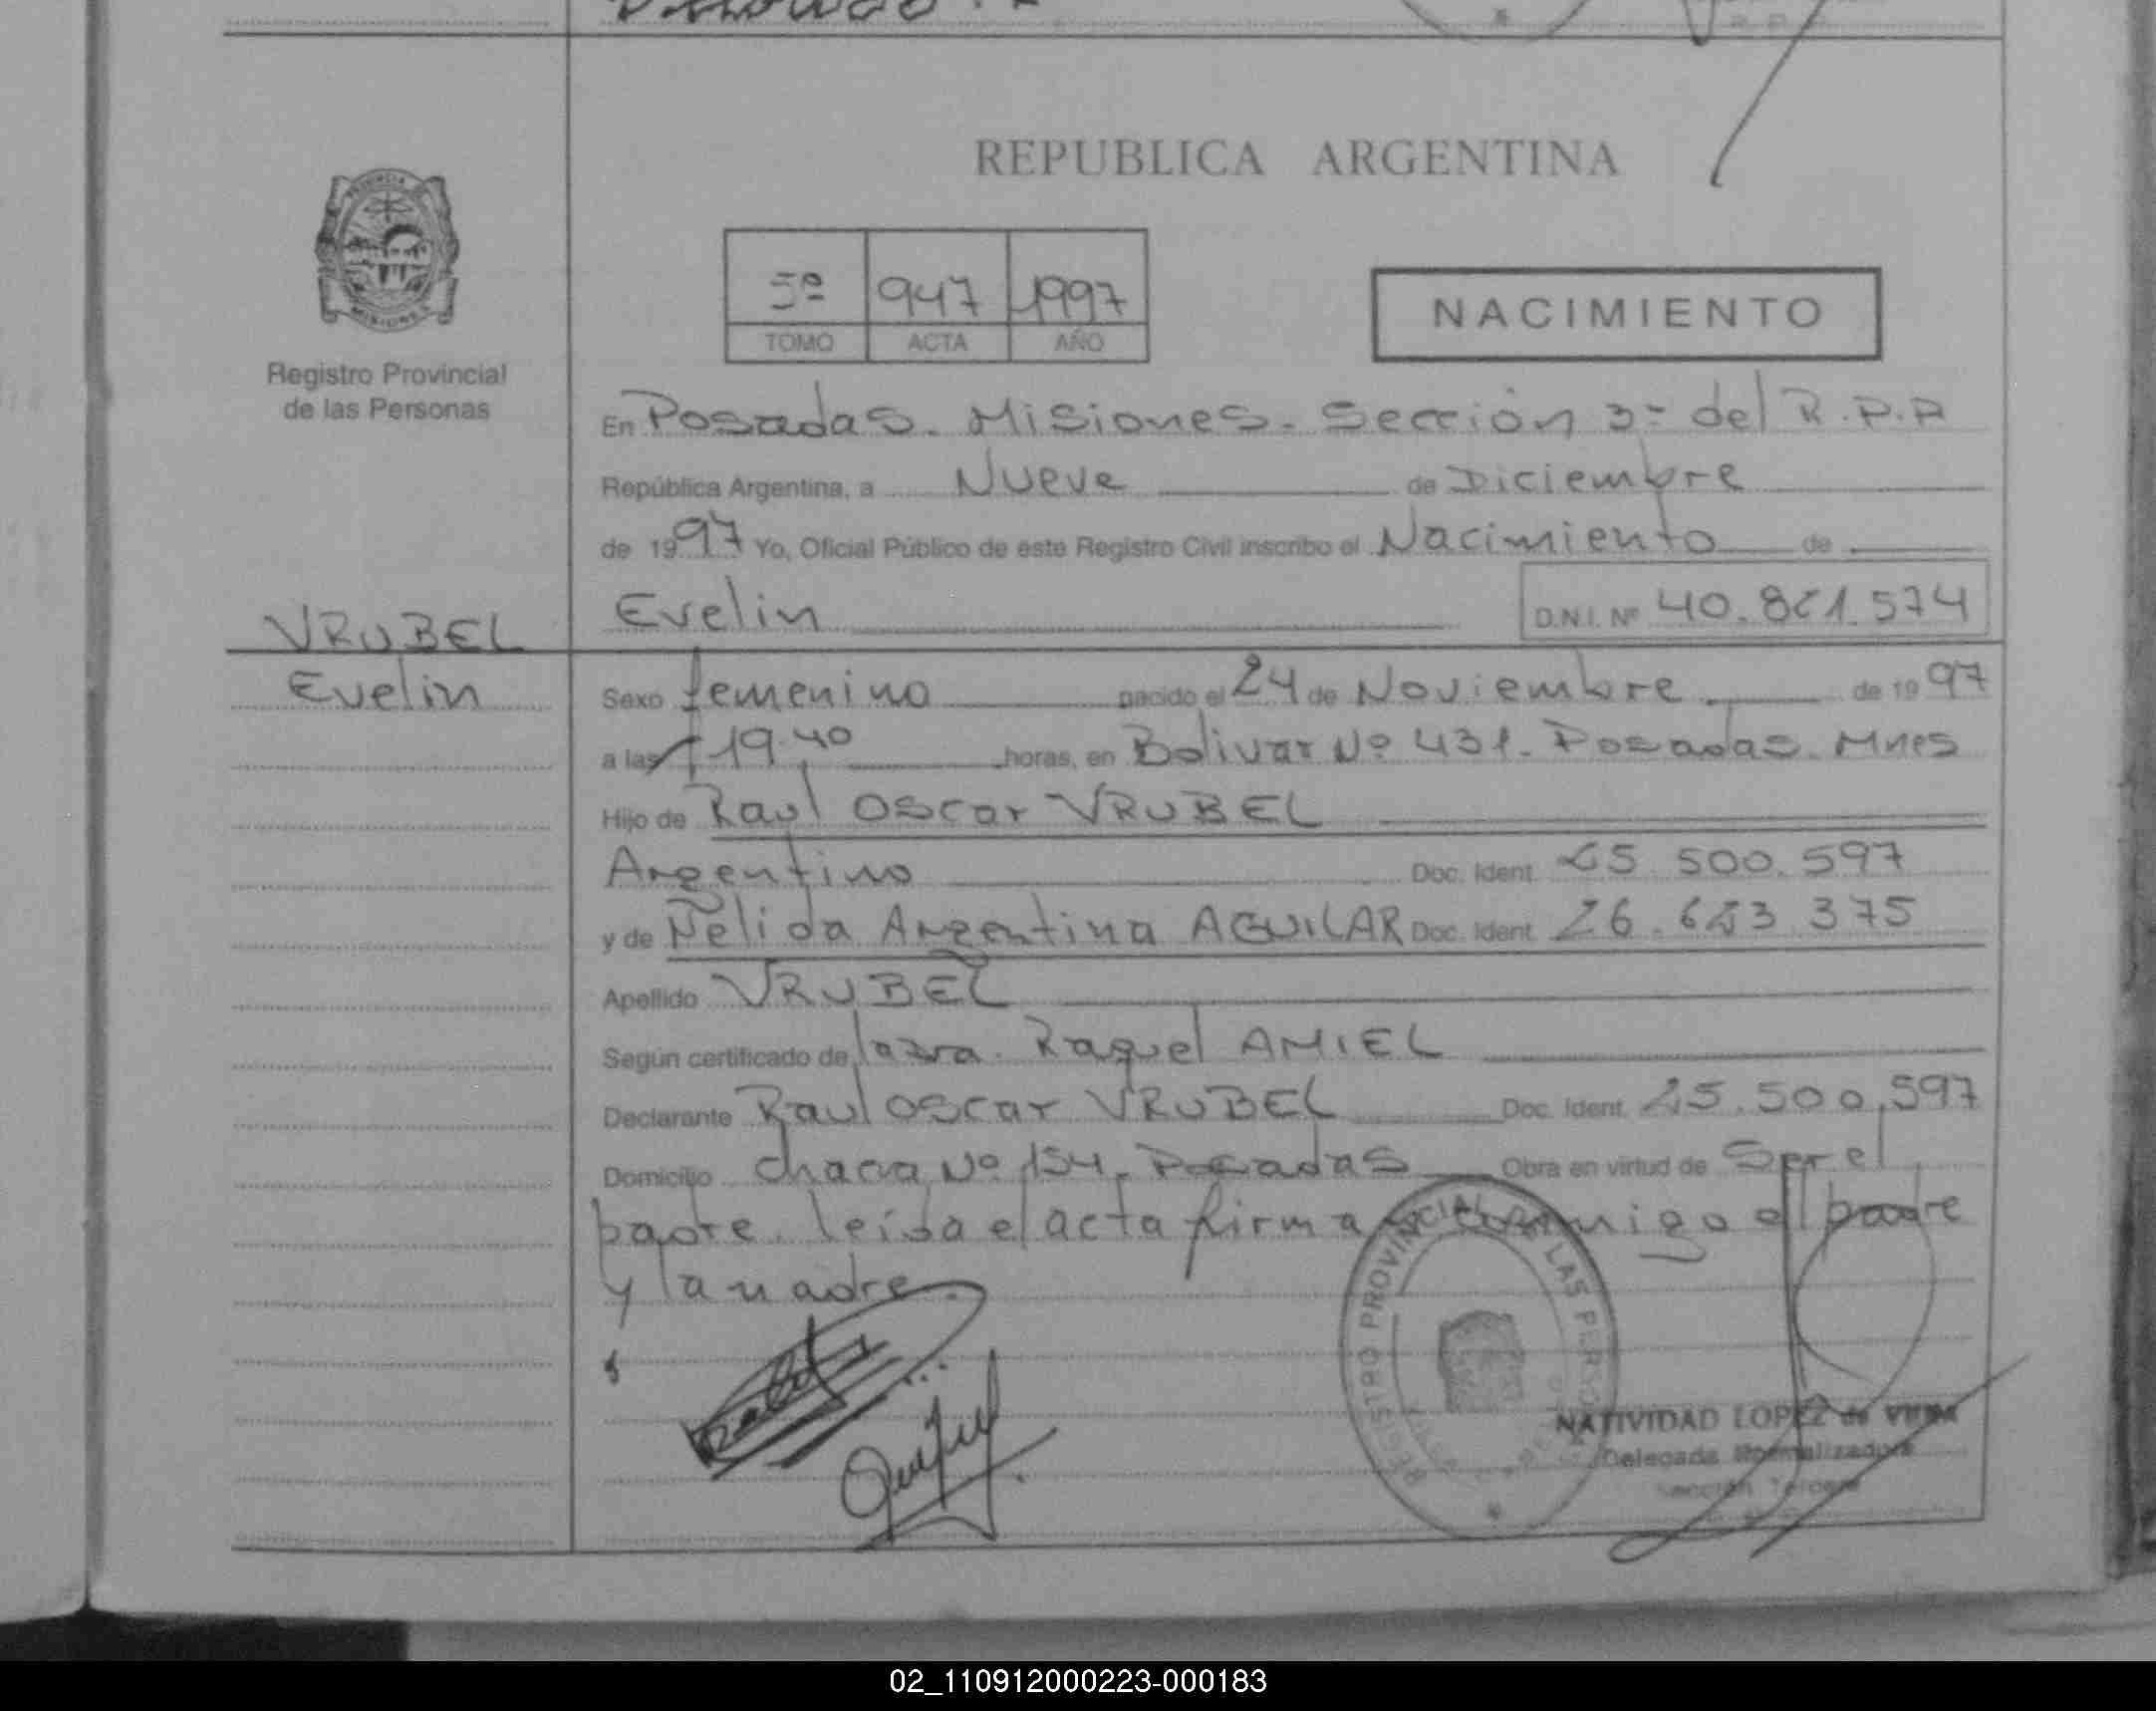 REPUBLICA ARGENTINA
PROVINCIA DE
MISIONES
Registro Provincial
de las Personas
5º 947 1997
TOMO ACTA AÑO
NACIMIENTO
En Posadas. Misiones. Sección 3º del R.P.P
República Argentina, a Nueve de Diciembre
de 1997 Yo, Oficial Público de este Registro Civil inscribo el Nacimiento de
Evelin D.N.I. Nº 40.861.574
VRUBEL
Evelin
Sexo femenino nacido el 24 de Noviembre de 1997
a las 19.40 horas, en Bolivar Nº 431. Posadas. Mnes
Hijo de Raul Oscar VRUBEL
Argentino Doc. Ident. 25.500.597
y de Nelida Argentina AGUILAR Doc. Ident. 26.623.375
Apellido VRUBEL
Según certificado de la Raquel AMIEL
Declarante Raul Oscar VRUBEL Doc. Ident. 25.500.597
Domicilio chacra Nº 154. Posadas Obra en virtud de Ser el
padre. leida el acta firma conmigo el padre
y la madre.
REGISTRO PROVINCIAL DE LAS PERSONAS
NATIVIDAD LOPEZ de
Delegada Normalizadora
Sección Tercera
02_110912000223-000183